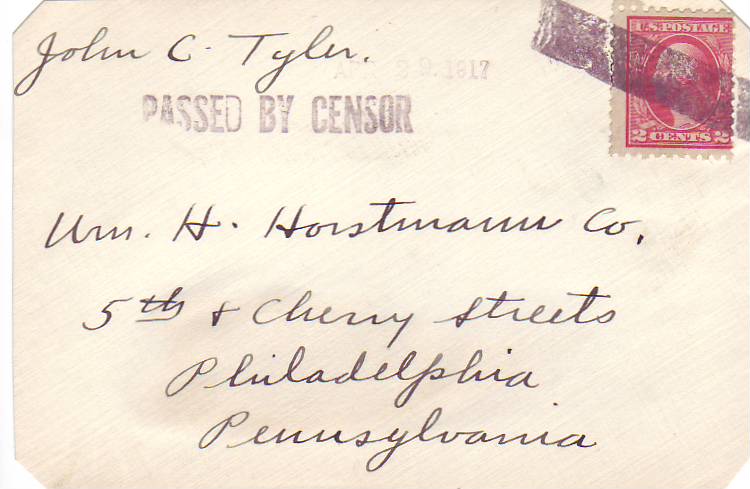 John C. Tyler.
29. 1917
PASSED BY CENSOR
U.S. POSTAGE
2 CENTS 2
Wm. H. Horstmann Co.
5th & Cherry Streets
Philadelphia
Pennsylvania